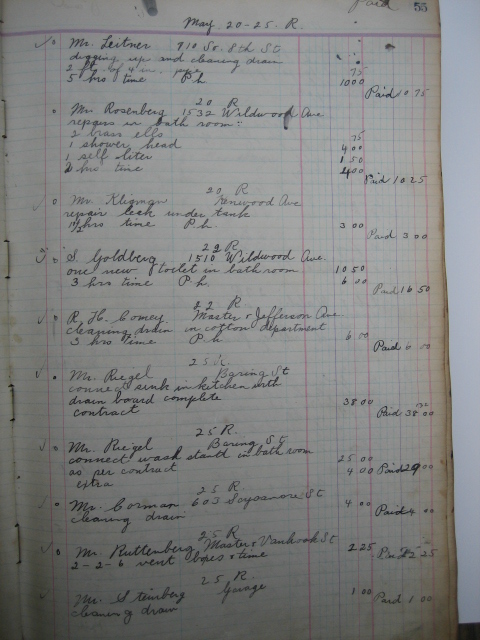 Paid 55
May 20-25 R.
Mr. Leitner 710 So. 8th St
digging up and cleaning drain
2 ft of 4 in. 75
5 hrs time P.h 1000 Paid 10 75
20 R
Mr Rosenberg 1532 Wildwood Ave
repairs in bath room:
2 brass ells 75
1 shower head 4 00
1 self liter 1 50
2 hrs time 4 00 Paid 10 25
20 R
Mr. Kligman Kenwood Ave
repair leak under tank
1 1/2 hrs time P.h. 3 00 Paid 3 00
22 R
S. Goldberg 1510 Wildwood Ave.
one new toilet in bath room 10 50
3 hrs time P.h. 6 00 Paid 16 50
22 R
R. H. Comey Master & Jefferson Ave
cleaning drain in cotton department
3 hrs time P.h 6 00 Paid 6 00
25 R.
Mr. Riegel Baring St
connect sink in kitchen with
drain board complete
contract 38 00 Paid 38 00
25 R.
Mr. Riegel Baring St
connect wash stand in bath room 25 00
as per contract 4 00 Paid 29 00
extra
25 R.
Mr. Corman 603 St 4 00 Paid 4 00
cleaning drain
25 R.
Mr. Ruttenberg Master & Vanhook St
2-2-6 vent caps & time 2 25 Paid 2 25
25 R.
Mr. Steinberg Garage 1 00 Paid 1 00
cleaning drain